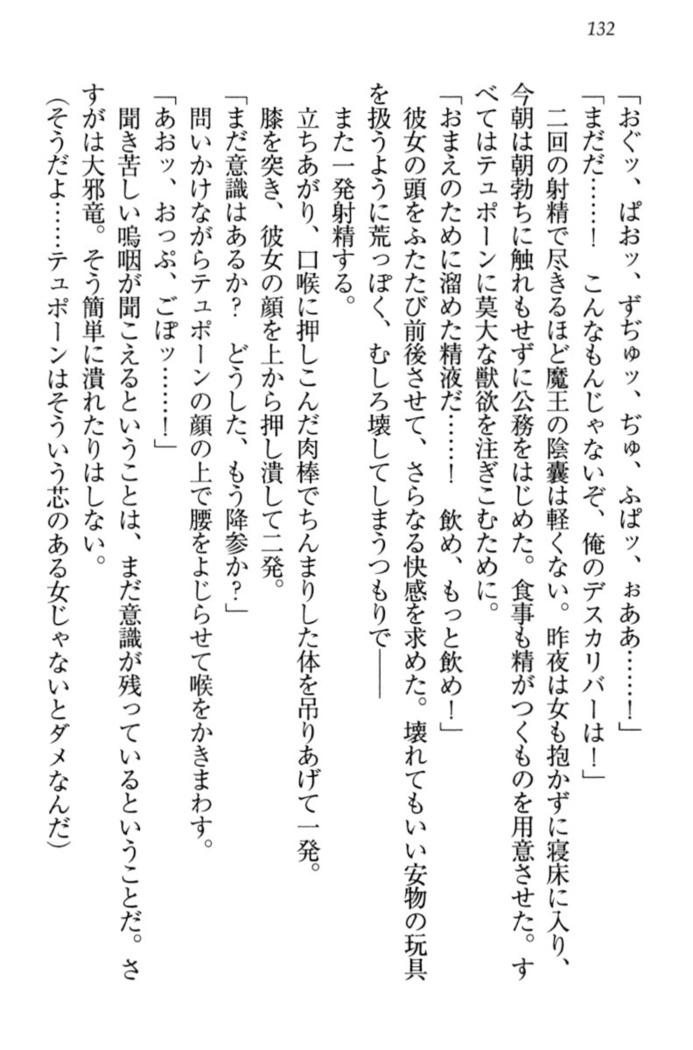 132
「おぐッ、ぱおッ、ずぢゅッ、ぢゅ、ふぱッ、ぉああ……！」
「まだだ……！　こんなもんじゃないぞ、俺のデスカリバーは！」
　二回の射精で尽きるほど魔王の陰嚢は軽くない。昨夜は女も抱かずに寝床に入り、
今朝は朝勃ちに触れもせずに公務をはじめた。食事も精がつくものを用意させた。す
べてはテュポーンに莫大な獣欲を注ぎこむために。
「おまえのために溜めた精液だ……！　飲め、もっと飲め！」
　彼女の頭をふたたび前後させて、さらなる快感を求めた。壊れてもいい安物の玩具
を扱うように荒っぽく、むしろ壊してしまうつもりで――
　また一発射精する。
　立ちあがり、口喉に押しこんだ肉棒でちんまりした体を吊りあげて一発。
　膝を突き、彼女の顔を上から押し潰して二発。
「まだ意識はあるか？　どうした、もう降参か？」
　問いかけながらテュポーンの顔の上で腰をよじらせて喉をかきまわす。
「あおッ、おっぷ、ごぽッ……！」
　聞き苦しい嗚咽が聞こえるということは、まだ意識が残っているということだ。さ
すがは大邪竜。そう簡単に潰れたりはしない。
（そうだよ……テュポーンはそういう芯のある女じゃないとダメなんだ）